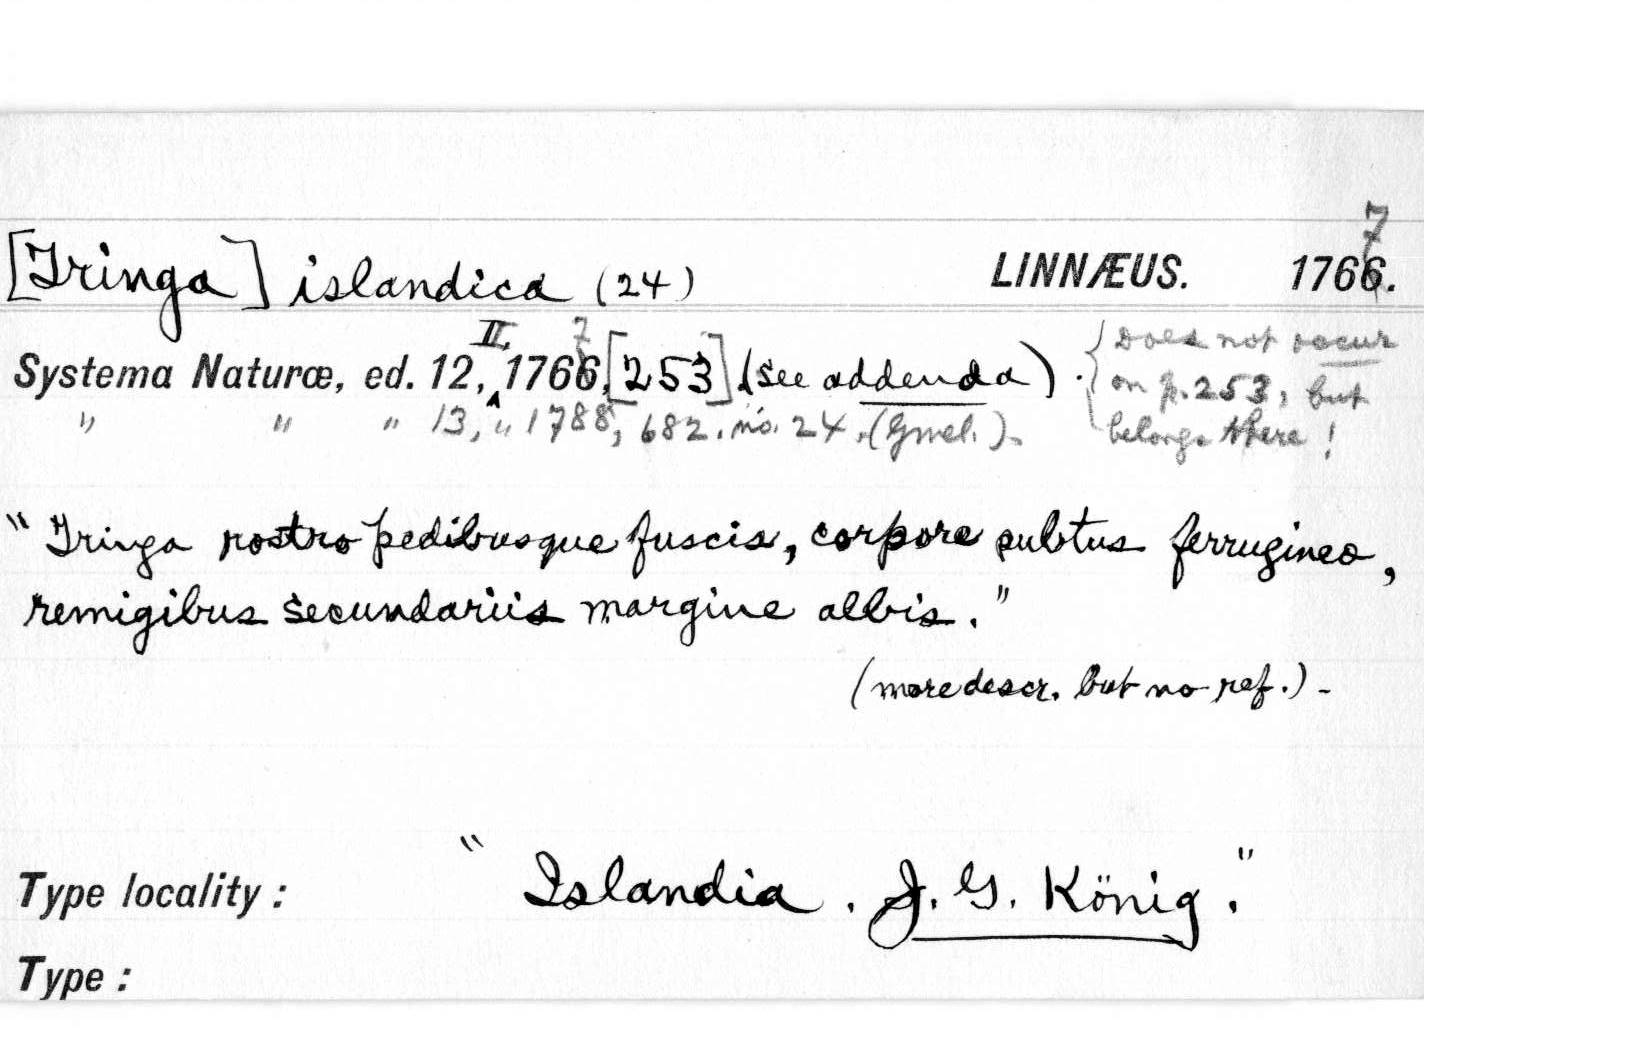 [Tringa] islandica (24) LINNÆUS. 1766. 7
Systema Naturæ, ed. 12, II, 1766, 7 [253] (see addenda). {Does not occur
on p. 253, but
belongs there!
" " " 13, " 1788, 682. no. 24. (Gmel.).
"Tringa rostro pedibusque fuscis, corpore subtus ferrugineo,
remigibus secundariis margine albis."
(more descr. but no ref.) -
Type locality: "Islandia. J. G. König."
Type: